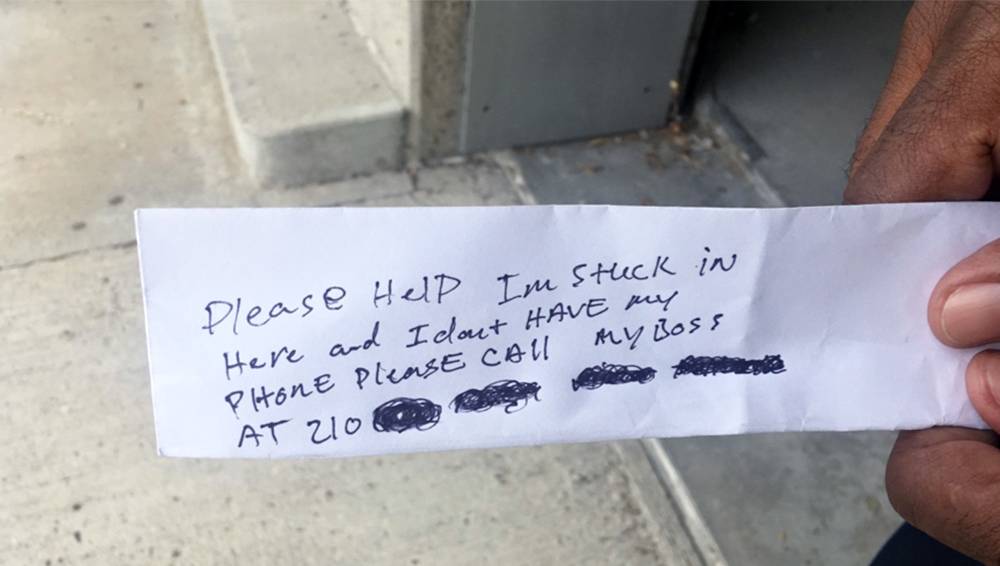 Please HelP Im stuck in
Here and I dont HAVE my
PHONE Please CAll MY BOSS
AT 210